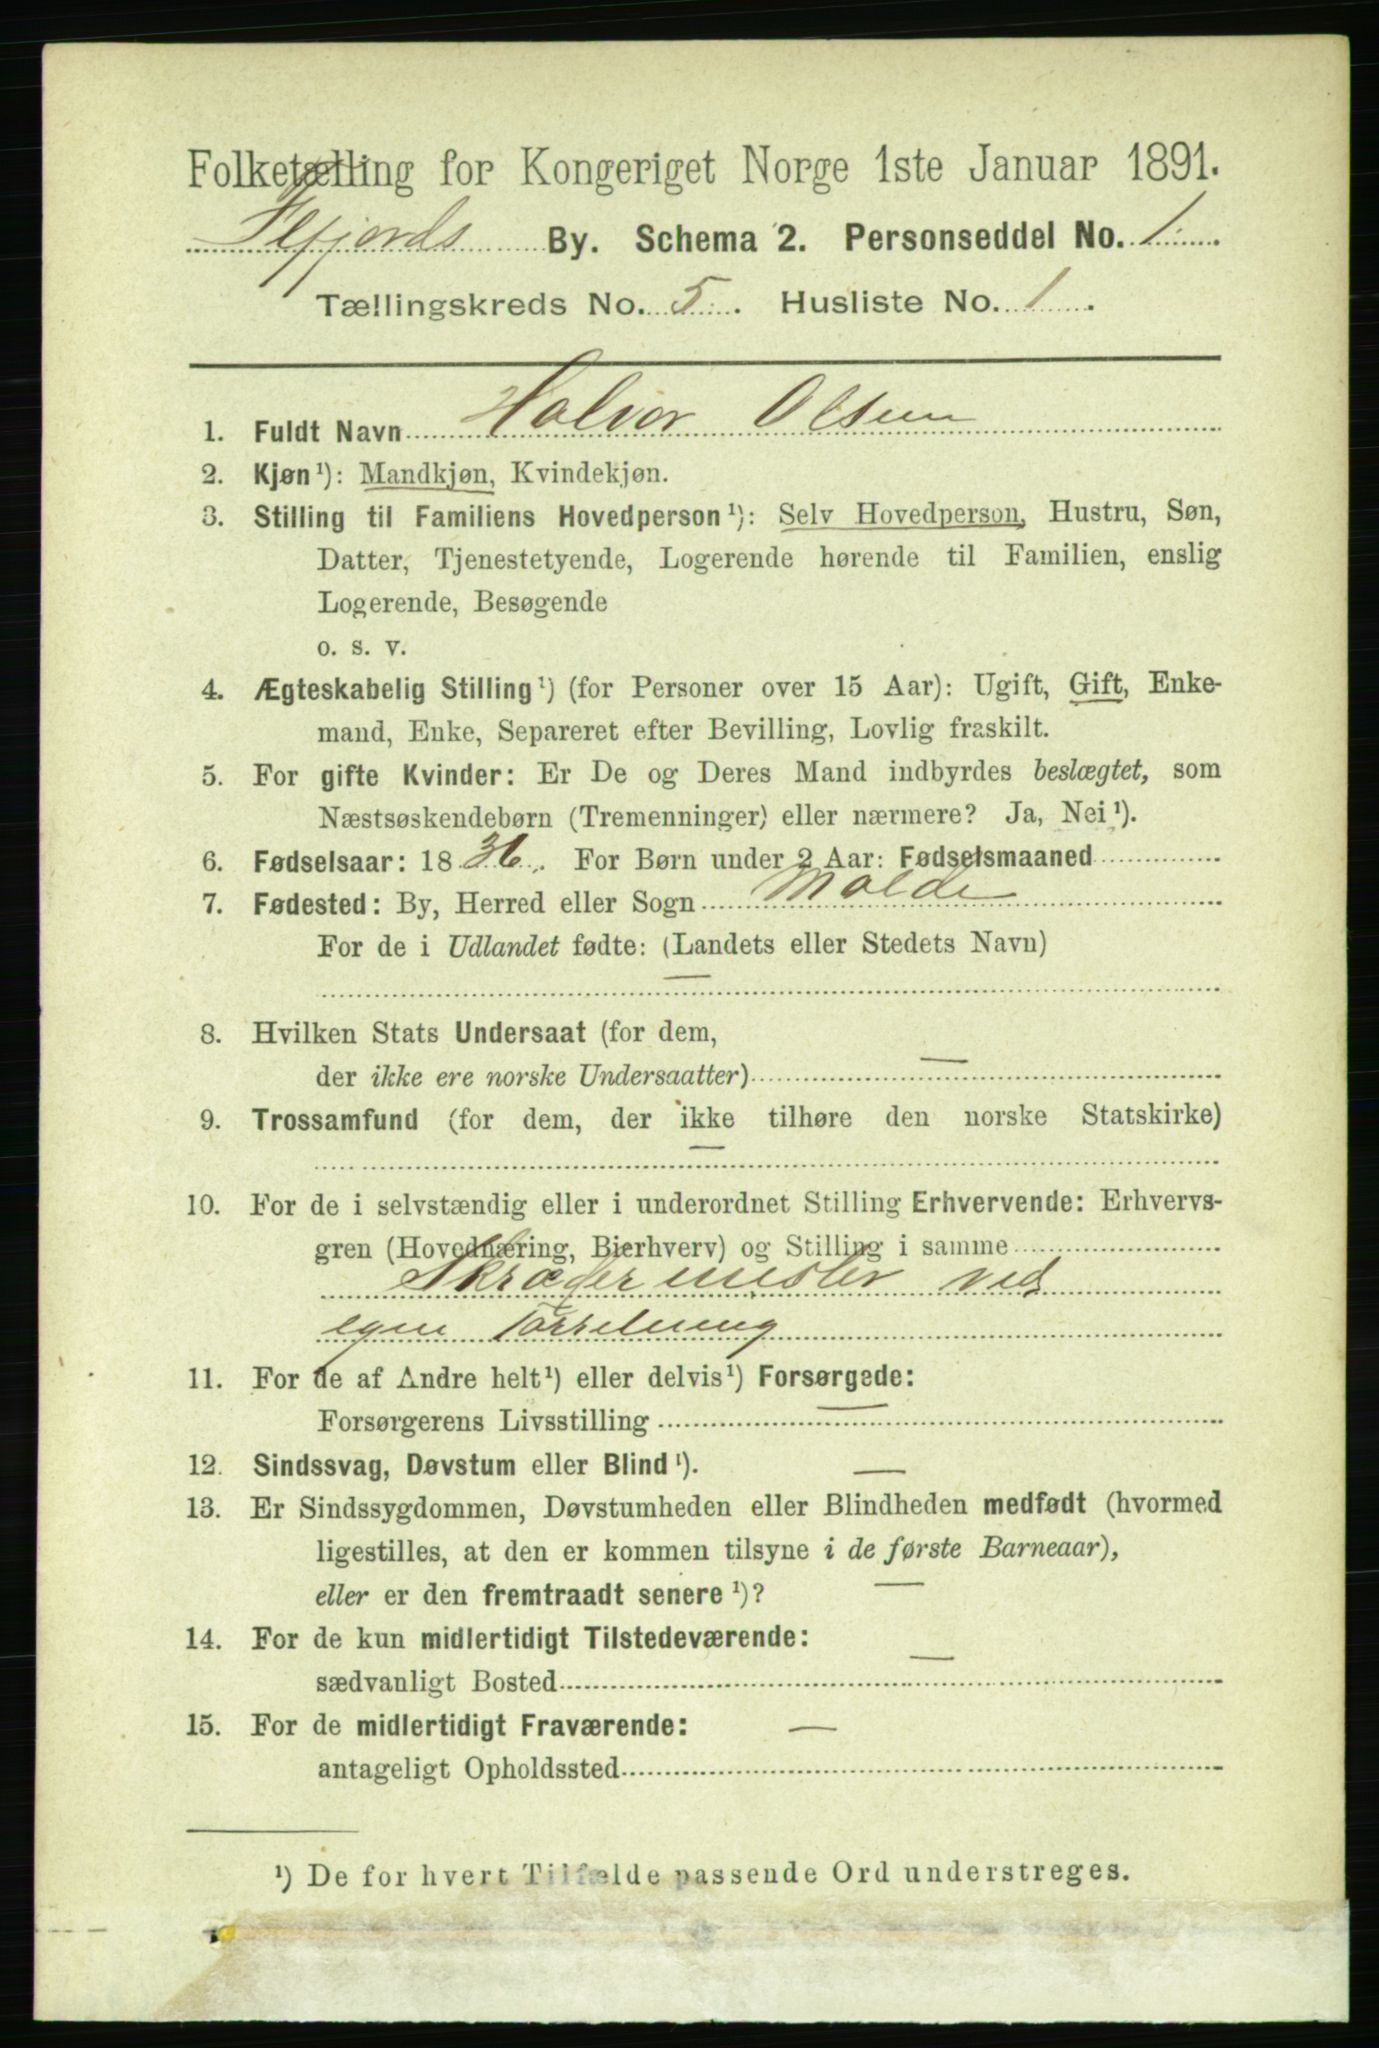 Folketælling for Kongeriget Norge 1ste Januar 1891.
By. Schema 2. Personseddel No. 1
Tællingskreds No. 5. Husliste No. 1.
1. Fuldt Navn Halvor Olsen
2. Kjøn¹): Mandkjøn, Kvindekjøn.
3. Stilling til Familiens Hovedperson¹): Selv Hovedperson, Hustru, Søn,
Datter, Tjenestetyende, Logerende hørende til Familien, enslig
Logerende, Besøgende
o. s. v.
4. Ægteskabelig Stilling¹) (for Personer over 15 Aar): Ugift, Gift, Enke-
mand, Enke, Separeret efter Bevilling, Lovlig fraskilt.
5. For gifte Kvinder: Er De og Deres Mand indbyrdes beslægtet, som
Næstsøskendebørn (Tremenninger) eller nærmere? Ja, Nei¹).
6. Fødselsaar: 1836. For Børn under 2 Aar: Fødselsmaaned
7. Fødested: By, Herred eller Sogn Molde
For de i Udlandet fødte: (Landets eller Stedets Navn)
—
8. Hvilken Stats Undersaat (for dem,
der ikke ere norske Undersaatter) —
9. Trossamfund (for dem, der ikke tilhøre den norske Statskirke)
—
10. For de i selvstændig eller i underordnet Stilling Erhvervende: Erhvervs-
gren (Hovednæring, Bierhverv) og Stilling i samme
ved
egen
11. For de af Andre helt¹) eller delvis¹) Forsørgede:
Forsørgerens Livsstilling —
12. Sindssvag, Døvstum eller Blind¹). —
13. Er Sindssygdommen, Døvstumheden eller Blindheden medfødt (hvormed
ligestilles, at den er kommen tilsyne i de første Barneaar),
eller er den fremtraadt senere¹)? —
14. For de kun midlertidigt Tilstedeværende:
sædvanligt Bosted —
15. For de midlertidigt Fraværende: —
antageligt Opholdssted
¹) De for hvert Tilfælde passende Ord understreges.